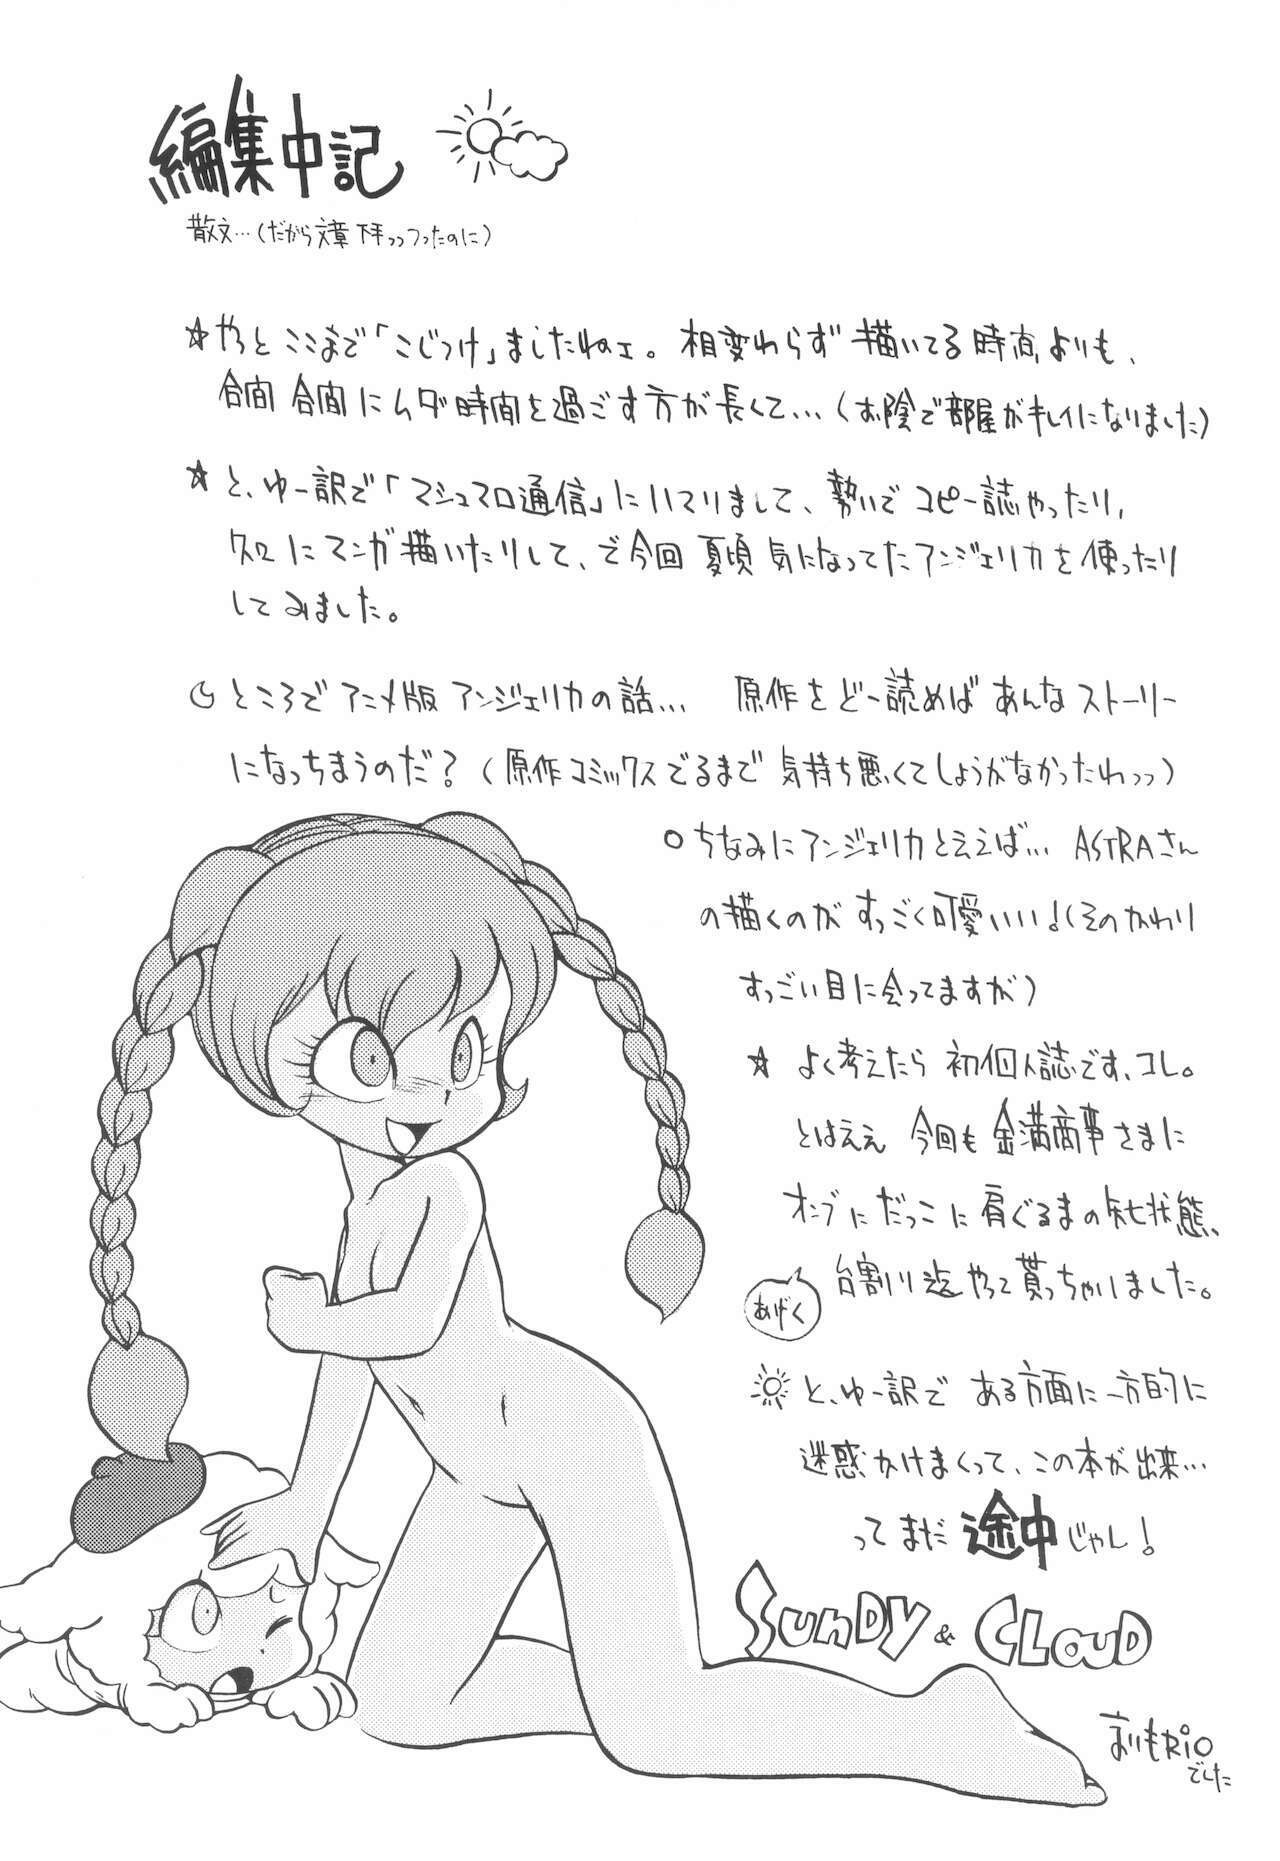 編集中記
散文…(だから文章下手っつったのに)
☆やっとここまで「こじつけ」ましたねェ。相変わらず描いてる時間よりも、
合間合間にムダ時間を過ごす方が長くて…(お陰で部屋がキレイになりました)
☆と、ゆー訳で「マシュマロ通信」にハマりまして、勢いでコピー誌やったり、
にマンガ描いたりして、で今回夏頃気になってたアンジェリカを使ったり
してみました。
ところでアニメ版アンジェリカの話… 原作をどー読めばあんなストーリー
になっちまうのだ?(原作コミックスでるまで気持ち悪くてしょうがなかったわっっ)
○ちなみにアンジェリカと云えば… ASTRAさん
の描くのがすっごく可愛いい!(そのかわり
すっごい目に会ってますが)
☆よく考えたら初個人誌です、コレ。
とはええ今回も金満商事さまに
オンブにだっこに肩ぐるまの 状態、
あげく
台割り迄やって貰っちゃいました。
と、ゆー訳である方面に一方的に
迷惑かけまくって、この本が出来…
ってまだ途中じゃん!
SunDY & CLouD
まりもRiO
でした